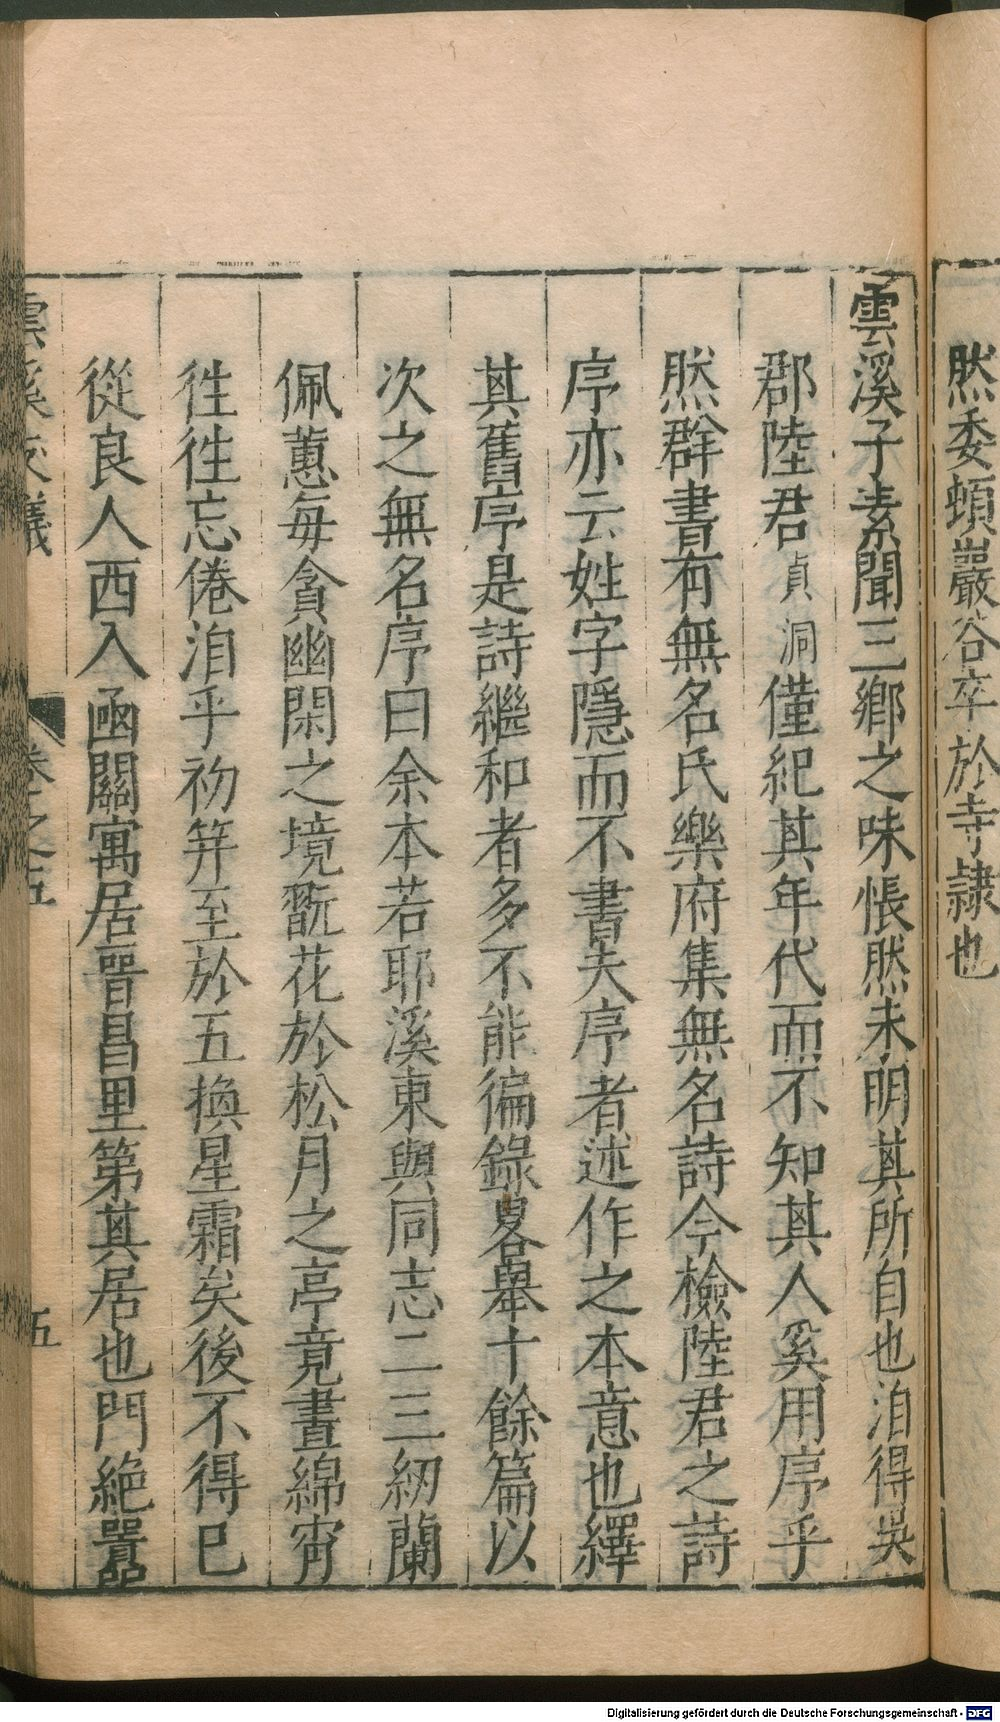 然委頓巖谷卒於寺隷也
雲溪子素聞三鄉之味悵然未明其所自也洎得吳
郡陸君貞洞僅紀其年代而不知其人奚用序乎
然群書有無名氏樂府集無名詩今檢陸君之詩
序亦云姓字隱而不書夫序者述作之本意也繹
其舊序是詩繼和者多不能徧錄畧舉十餘篇以
次之無名序曰余本若耶溪東與同志二三紉蘭
佩蕙每貪幽閑之境翫花於松月之亭竟晝綿宵
徃徃忘倦洎乎初笄至於五換星霜矣後不得已
從良人西入函關寓居晉昌里第其居也門絶囂
雲溪友議
卷之五
五
Digitalisierung gefördert durch die Deutsche Forschungsgemeinschaft - DFG